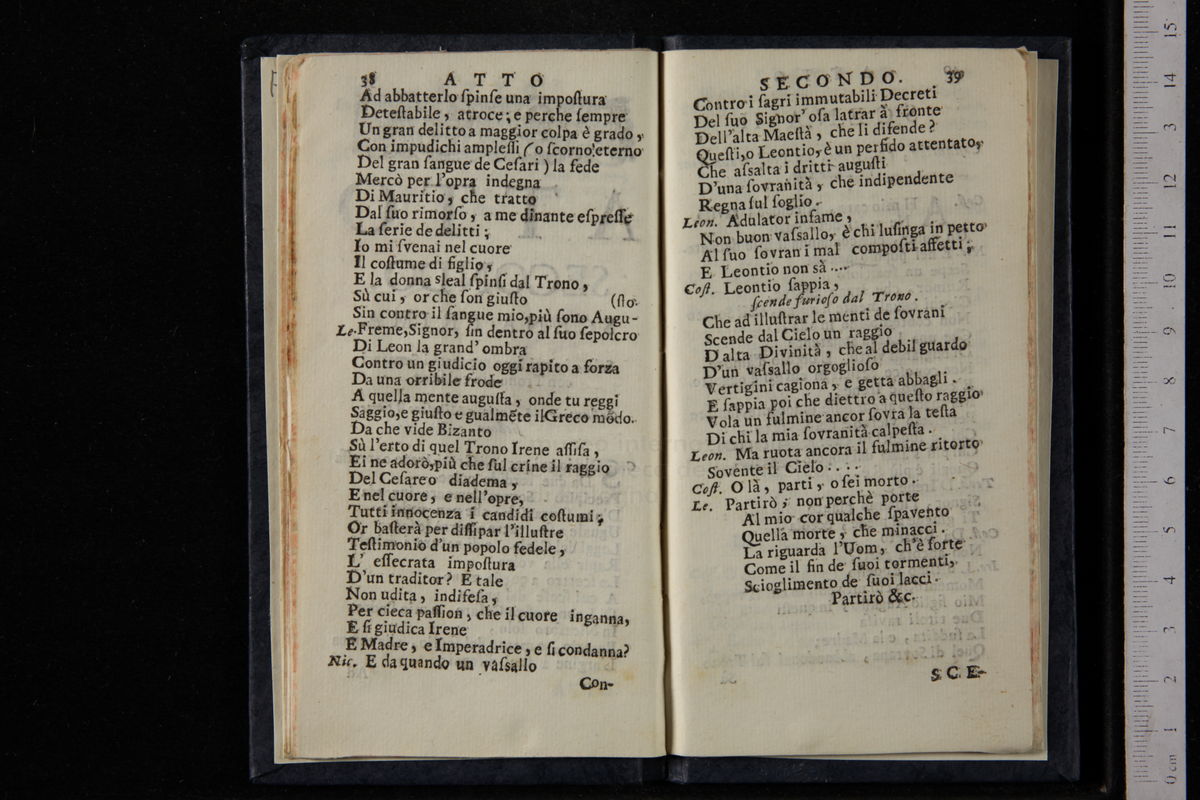 38 ATTO
Ad abbatterlo ſpinſe una impoſtura
Deteſtabile, atroce; e perche ſempre
Un gran delitto a maggior colpa è grado,
Con impudichi ampleſſi (o ſcorno eterno
Del gran ſangue de Ceſari) la fede
Mercò per l'opra indegna
Di Mauritio, che tratto
Dal ſuo rimorſo, a me dinante eſpreſſe
La ſerie de delitti;
Io mi ſvenai nel cuore
Il coſtume di figlio,
E la donna sleal ſpinſi dal Trono,
Sù cui, or che ſon giuſto (ſto.
Sin contro il ſangue mio, più ſono Augu-
Le. Freme, Signor, ſin dentro al ſuo ſepolcro
Di Leon la grand' ombra
Contro un giudicio oggi rapito a forza
Da una orribile frode
A quella mente auguſta, onde tu reggi
Saggio, e giuſto e gualmēte il Greco mōdo.
Da che vide Bizanto
Sù l'erto di quel Trono Irene aſſiſa,
Ei ne adorò, più che ſul crine il raggio
Del Ceſareo diadema,
E nel cuore, e nell'opre,
Tutti innocenza i candidi coſtumi;
Or baſterà per diſſipar l'illuſtre
Teſtimonio d'un popolo fedele,
L' eſſecrata impoſtura
D'un traditor? E tale
Non udita, indifeſa,
Per cieca paſſion, che il cuore inganna,
E ſi giudica Irene
E Madre, e Imperadrice, e ſi condanna?
Nic. E da quando un vaſſallo
Con-
SECONDO. 39
Contro i ſagri immutabili Decreti
Del ſuo Signor' oſa latrar à fronte
Dell'alta Maeſtà, che li difende?
Queſti, o Leontio, è un perfido attentato,
Che aſsalta i dritti auguſti
D'una ſovranità, che indipendente
Regna ſul ſoglio.
Leon. Adulator infame,
Non buon vaſsallo, è chi luſinga in petto
Al ſuo ſovran i mal compoſti affetti;
E Leontio non sà ....
Coſt. Leontio ſappia,
ſcende furioſo dal Trono.
Che ad illuſtrar le menti de ſovrani
Scende dal Cielo un raggio
D alta Divinità, che al debil guardo
D'un vaſsallo orgoglioſo
Vertigini cagiona, e getta abbagli.
E ſappia poi che diettro a queſto raggio
Vola un fulmine ancor ſovra la teſta
Di chi la mia ſovranità calpeſta.
Leon. Ma ruota ancora il fulmine ritorto
Sovente il Cielo....
Coſt. O là, parti, o ſei morto.
Le. Partirò; non perchè porte
Al mio cor qualche ſpavento
Quella morte, che minacci.
La riguarda l'Uom, ch'è forte
Come il fin de ſuoi tormenti,
Scioglimento de ſuoi lacci.
Partirò &c.
SCE-